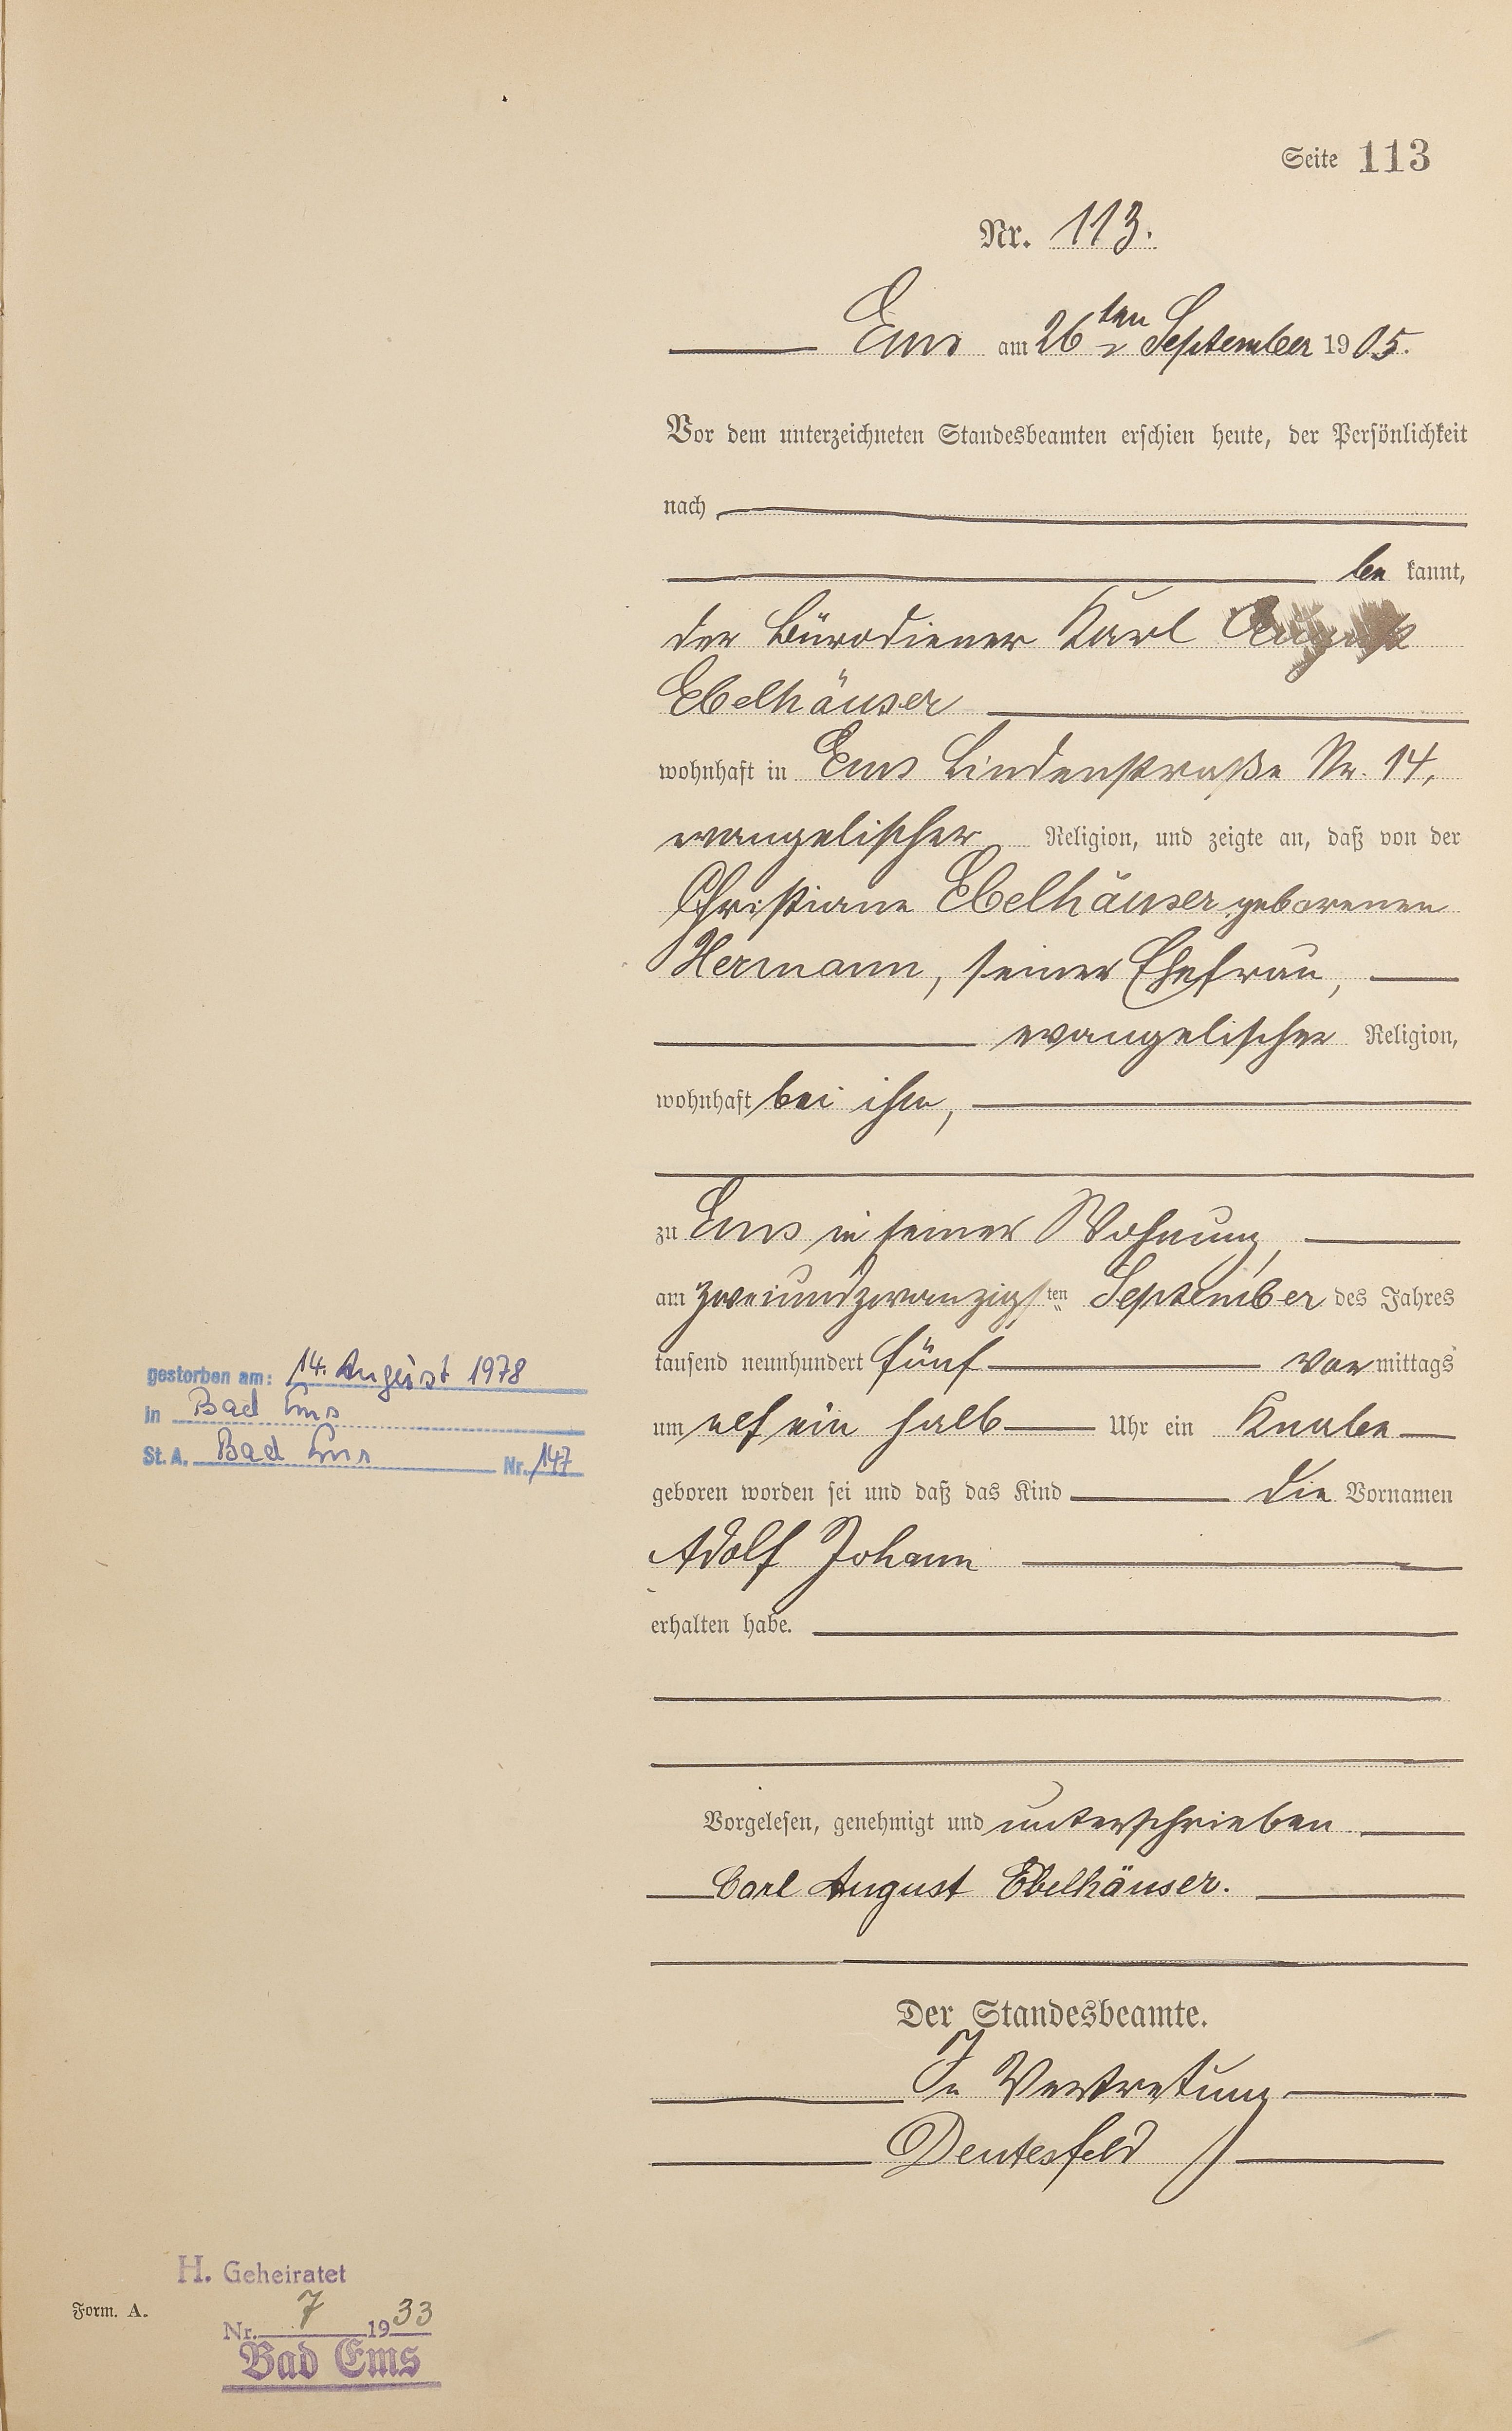 Seite 113
Nr. 113.
Ems am 26ten September 1905.
Vor dem unterzeichneten Standesbeamten erschien heute, der Persönlichkeit
nach
be kannt,
der Bürodiener Karl August
Ebelhäuser
wohnhaft in Ems Lindenstraße Nr. 14,
evangelischer Religion, und zeigte an, daß von der
Christiane Ebelhäuser geborenen
Hermann, seiner Ehefrau,
evangelischer Religion,
wohnhaft bei ihm,
zu Ems in seiner Wohnung,
am zweiundzwanzigsten September des Jahres
tausend neunhundert fünf vor mittags
um elf ein halb Uhr ein Knabe
geboren worden sei und daß das Kind die Vornamen
Adolf Johann
erhalten habe.
Vorgelesen, genehmigt und unterschrieben
Carl August Ebelhäuser.
Der Standesbeamte.
In Vertretung
Deutesfeld
gestorben am: 14. August 1978
in Bad Ems
St. A. Bad Ems Nr. 147
H. Geheiratet
Form. A.
Nr. 7 1933
Bad Ems